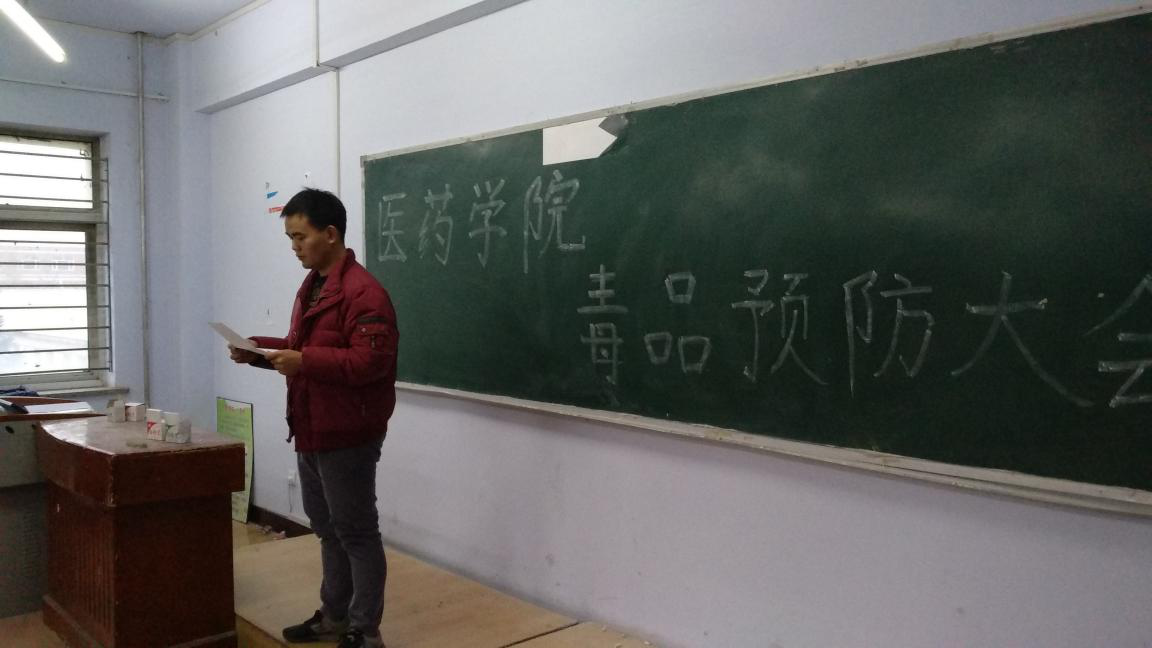 医药学院
毒品预防大会